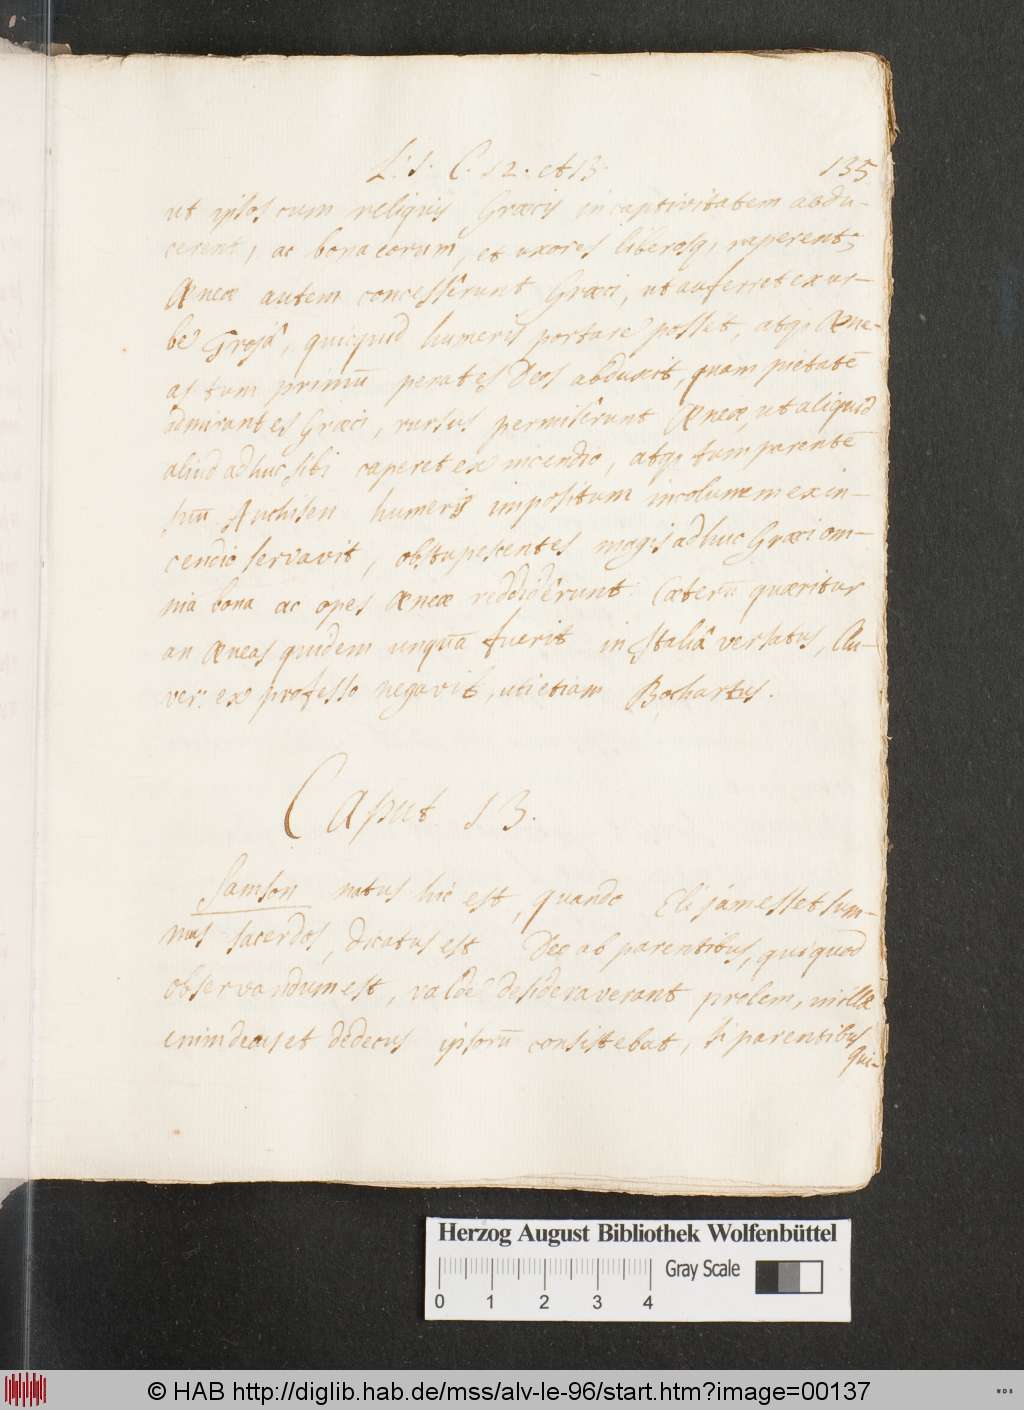 L. 1. C. 12. et 13.
135
ut ipsos cum reliquis Græcis in captivitatem abdu-
cerent, ac bona eorum, et uxores liberosq; raperent;
Æneæ autem concessêrunt Græci, ut auferret ex ur-
be Trojâ, quicquid humeris portare posset, atq; Æne-
as tum primū penates Deos abduxit, quam pietatē
admirantes Græci, rursus permisêrunt Æneæ, ut aliquid
aliud adhuc sibi caperet ex incendio, atq; tum parentē
suū Anchisen humeris impositum incolumem ex in-
cendio servavit, obstupescentes magis adhuc Græci om-
nia bona ac opes Æneæ reddidêrunt. Cæterū quæritur
an Æneas quidem unquā fuerit in Italiâ versatus, Clu-
ver: ex professo negavit, uti etiam Bochartus.
Caput 13.
Samson natus hic est, quando Eli jam esset sum-
mus sacerdos, dicatus est Deo ab parentibus, qui quod
observandum est, valdè desideraverant prolem, in illâ
enim decus et dedecus ipsorū consistebat, si parentibus
qui-
Herzog August Bibliothek Wolfenbüttel
Gray Scale
0 1 2 3 4
© HAB http://diglib.hab.de/mss/alv-le-96/start.htm?image=00137